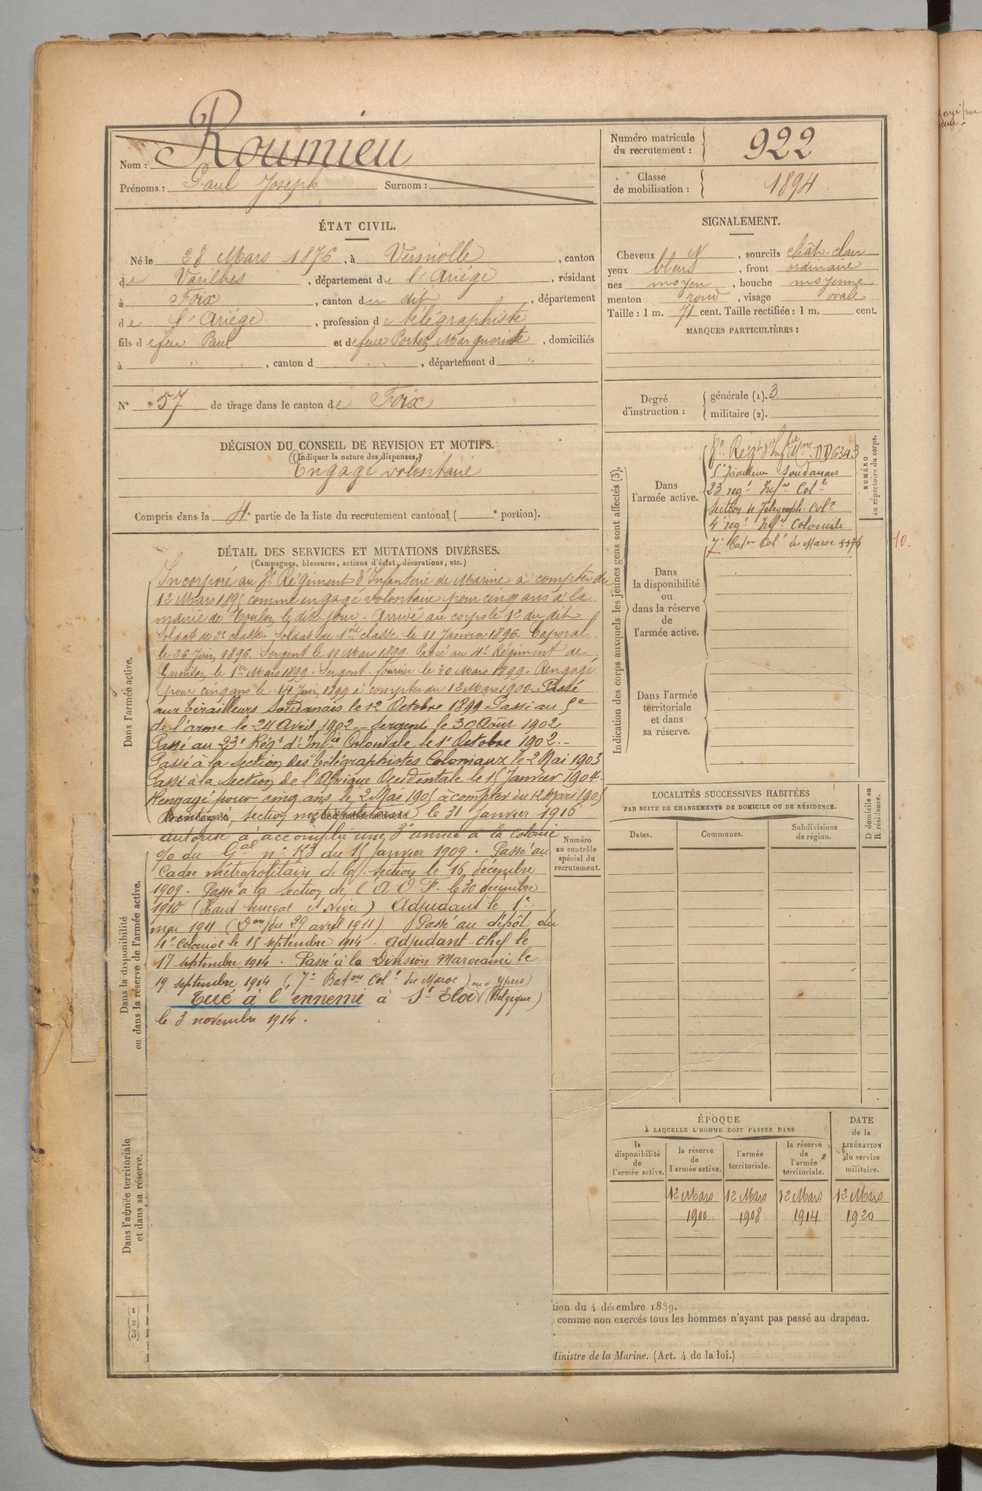 Nom : Roumieu
Prénoms : Paul Joseph Surnom :
Numéro matricule du recrutement : 922
Classe de mobilisation : 1894
ÉTAT CIVIL.
Né le 28 Mars 1876, à Verniolle, canton
de Varilhes, département de l'Ariège, résidant
à Foix, canton du dit, département
de l'Ariège, profession de télégraphiste
fils de feu Paul et de feue Portes Marguerite, domiciliés
à " , canton d , département d "
N° 57 de tirage dans le canton de Foix
SIGNALEMENT.
Cheveux N, sourcils chât. clair
yeux bleus, front ordinaire
nez moyen, bouche moyenne
menton rond, visage ovale
Taille : 1 m. 71 cent. Taille rectifiée : 1 m. cent.
MARQUES PARTICULIÈRES :
Degré d'instruction : générale (1). 3
militaire (2).
DÉCISION DU CONSEIL DE REVISION ET MOTIFS.
(Indiquer la nature des dispenses.)
Engagé volontaire
Compris dans la 4e partie de la liste du recrutement cantonal ( e portion).
DÉTAIL DES SERVICES ET MUTATIONS DIVERSES.
(Campagnes, blessures, actions d'éclat, décorations, etc.)
Dans l'armée active.
Incorporé au 8e Régiment d'Infanterie de Marine à compter du
12 Mars 1895 comme engagé volontaire pour cinq ans à la
mairie de Toulon le dit jour. Arrivé au corps le 12 du dit
Soldat de 2e classe. Soldat de 1ère classe le 11 Janvier 1896. Caporal
le 26 Juin 1896. Sergent le 11 Mars 1899. Passé au 4e Régiment de
le 1er Mars 1899. Sergent fourrier le 30 Mars 1899. Rengagé
pour cinq ans le 14 Juin 1899 à compter du 12 Mars 1900. Passé
aux tirailleurs Soudanais le 12 Octobre 1899. Passé au 8e
de l'arme le 24 Avril 1902. Sergent le 30 Août 1902
Passé au 23e Régt d'Infie Coloniale le 1er Octobre 1902.
Passé à la section des télégraphistes Coloniaux le 2 Mai 1903
Passé à la section de l'Afrique Occidentale le 15 Janvier 1904.
Rengagé pour cinq ans le 2 Mai 1905 à compter du 12 Mars 1905
section le 31 janvier 1916
Dans la disponibilité ou dans la réserve de l'armée active.
autorisé à accomplir une 3e année à la colonie
du Gal n° 153 du 15 Janvier 1909. Passé au
Cadre métropolitain de la section le 16 décembre
1909. Passé à la section de l'A O F le 30 décembre
1910 (Haut Sénégal et Niger) Adjudant le 1er
mai 1911 (Don du 29 avril 1911) Passé au dépôt du
4e colonial le 15 septembre 1914. adjudant-chef le
17 septembre 1914. Passé à la Division Marocaine le
19 septembre 1914 (7e Baton Colal du Maroc)
Tué à l'ennemi à St Eloi (Belgique)
le 3 novembre 1914.
Dans l'armée territoriale et dans sa réserve.
(1)
(2)
(3)
Numéro au contrôle spécial du recrutement.
Indication des corps auxquels les jeunes gens sont affectés (3).
NUMÉRO au répertoire du corps.
Dans l'armée active.
8e Régt d'Infie Mne
Tirailleurs Soudanais
23 régt Infie Colle
Section de Télégraph. Colx
4e régt Infie Coloniale
7e Baton Colal du Maroc
10.
Dans la disponibilité ou dans la réserve de l'armée active.
Dans l'armée territoriale et dans sa réserve.
LOCALITÉS SUCCESSIVES HABITÉES
PAR SUITE DE CHANGEMENTS DE DOMICILE OU DE RÉSIDENCE.
Dates. Communes. Subdivisions de région.
D domicile ou R résidence.
ÉPOQUE
À LAQUELLE L'HOMME DOIT PASSER DANS
la disponibilité de l'armée active.
la réserve de l'armée active.
l'armée territoriale.
la réserve de l'armée territoriale.
DATE de la LIBÉRATION du service militaire.
12 Mars 12 Mars 12 Mars 12 Mars
1900 1908 1914 1920
tion du 4 décembre 1889.
comme non exercés tous les hommes n'ayant pas passé au drapeau.
Ministre de la Marine. (Art. 4 de la loi.)